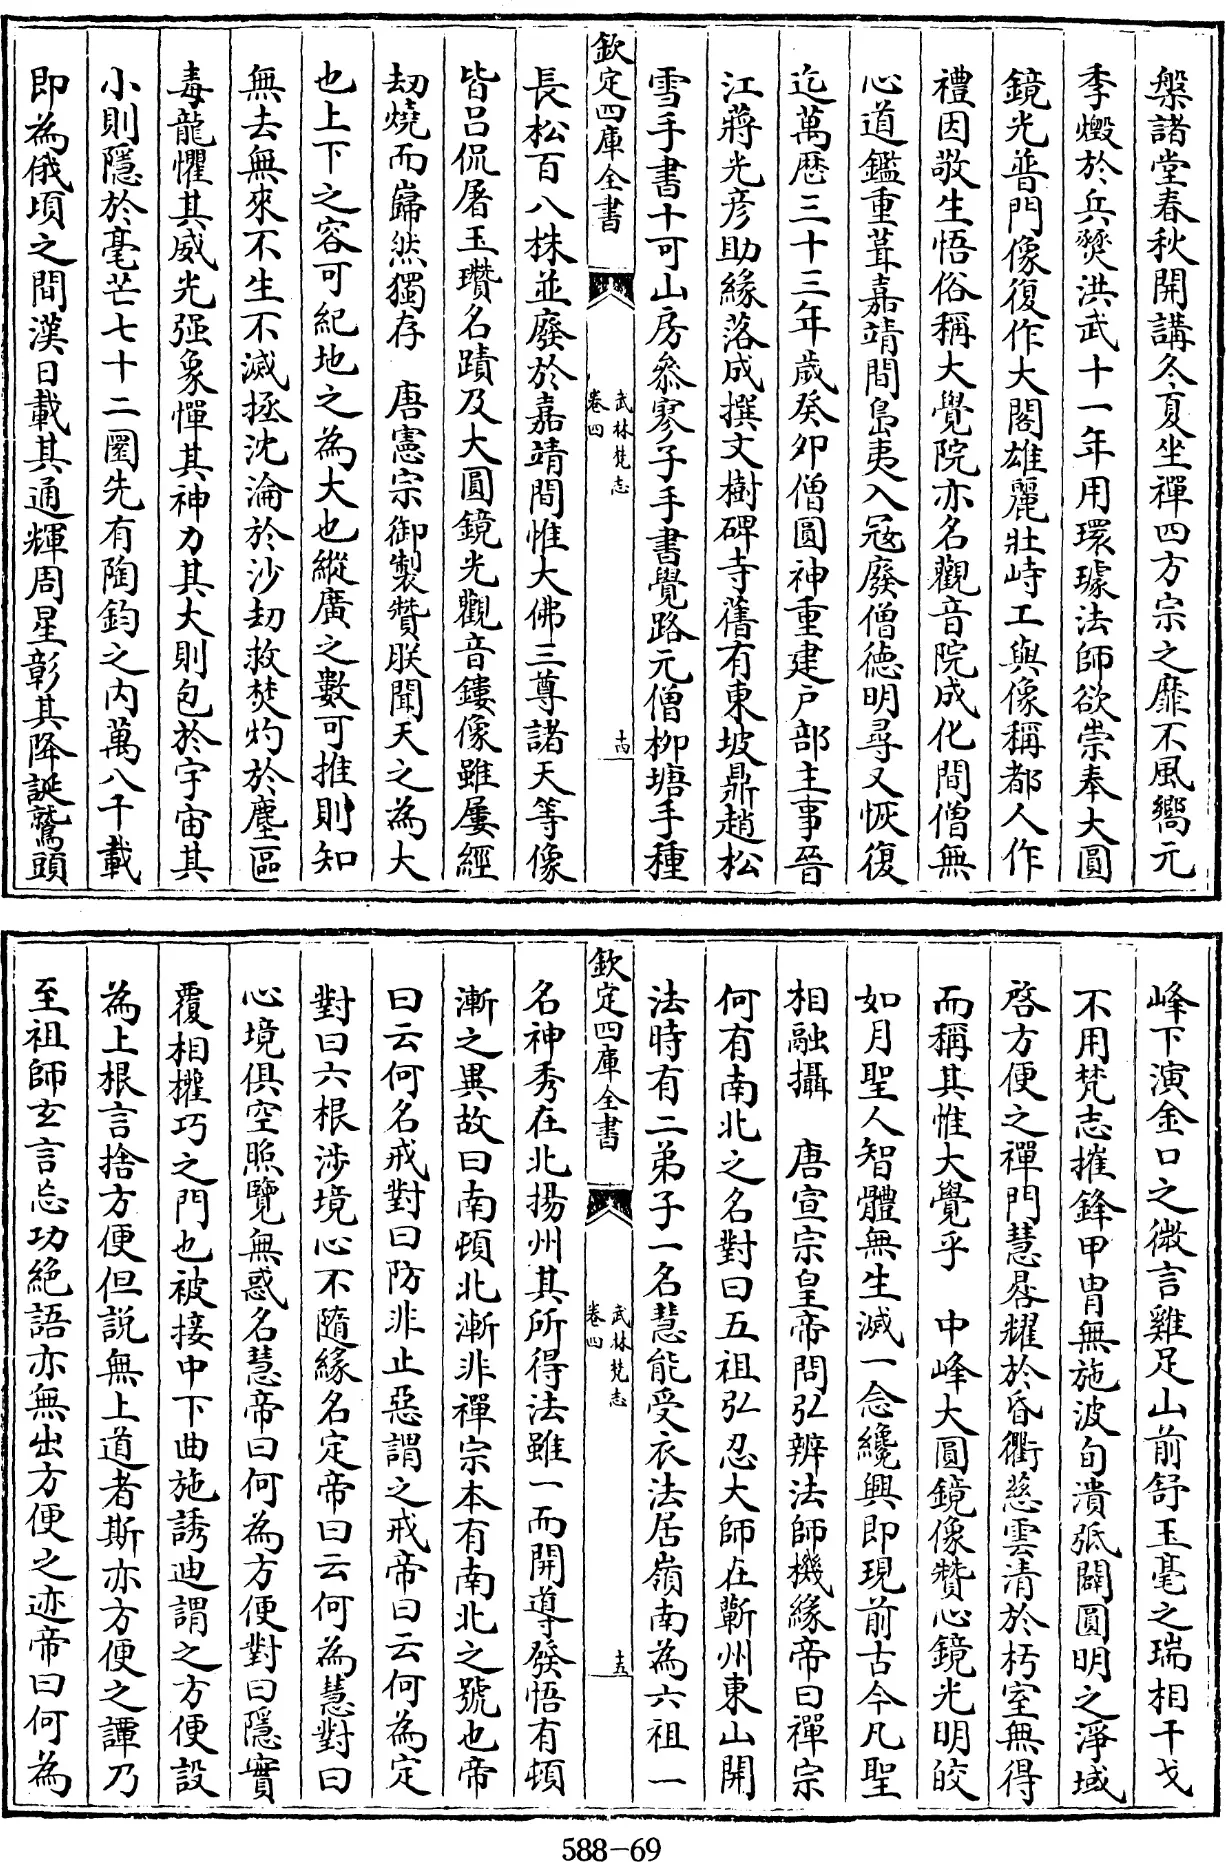 槃諸堂春秋開講冬夏坐禪四方宗之靡不風嚮元
季燬於兵燹洪武十一年用環璩法師欲崇奉大圓
鏡光普門像復作大閣雄麗壯峙工與像稱都人作
禮因敬生悟俗稱大覺院亦名觀音院成化間僧無
心道鑑重葺嘉靖間島夷入寇廢僧德明尋又恢復
迄萬歴三十三年歲癸卯僧圓神重建戸部主事晉
江蔣光彦助緣落成撰文樹碑寺舊有東坡鼎趙松
雪手書十可山房叅寥子手書覺路元僧栁塘手種
欽定四庫全書
武林梵志
卷四
十四
長松百八株並廢於嘉靖間惟大佛三尊諸天等像
皆吕侃屠玉瓚名蹟及大圓鏡光觀音鏤像雖屢經
刼燒而巋然獨存　唐憲宗御製贊朕聞天之為大
也上下之容可紀地之為大也縱廣之數可推則知
無去無來不生不滅拯沈淪於沙刼救焚灼於塵區
毒龍懼其威光强象憚其神力其大則包於宇宙其
小則隱於毫芒七十二圍先有陶鈞之内萬八千載
即為俄頃之間漢日載其通輝周星彰其降誕鷲頭
峰下演金口之微言雞足山前舒玉毫之瑞相干戈
不用梵志摧鋒甲胄無施波旬潰弧闢圓明之淨域
啓方便之禪門慧晷耀於昏衢慈雲清於朽室無得
而稱其惟大覺乎　中峰大圓鏡像贊心鏡光明皎
如月聖人智體無生滅一念纔興即現前古今凡聖
相融攝　唐宣宗皇帝問弘辨法師機緣帝曰禪宗
何有南北之名對曰五祖弘忍大師在蘄州東山開
法時有二弟子一名慧能受衣法居嶺南為六祖一
欽定四庫全書
武林梵志
卷四
十五
名神秀在北揚州其所得法雖一而開導發悟有頓
漸之異故曰南頓北漸非禪宗本有南北之號也帝
曰云何名戒對曰防非止惡謂之戒帝曰云何為定
對曰六根涉境心不隨緣名定帝曰云何為慧對曰
心境俱空照覽無惑名慧帝曰何為方便對曰隱實
覆相權巧之門也被接中下曲施誘迪謂之方便設
為上根言捨方便但説無上道者斯亦方便之譚乃
至祖師玄言忘功絶語亦無出方便之迹帝曰何為
588-69